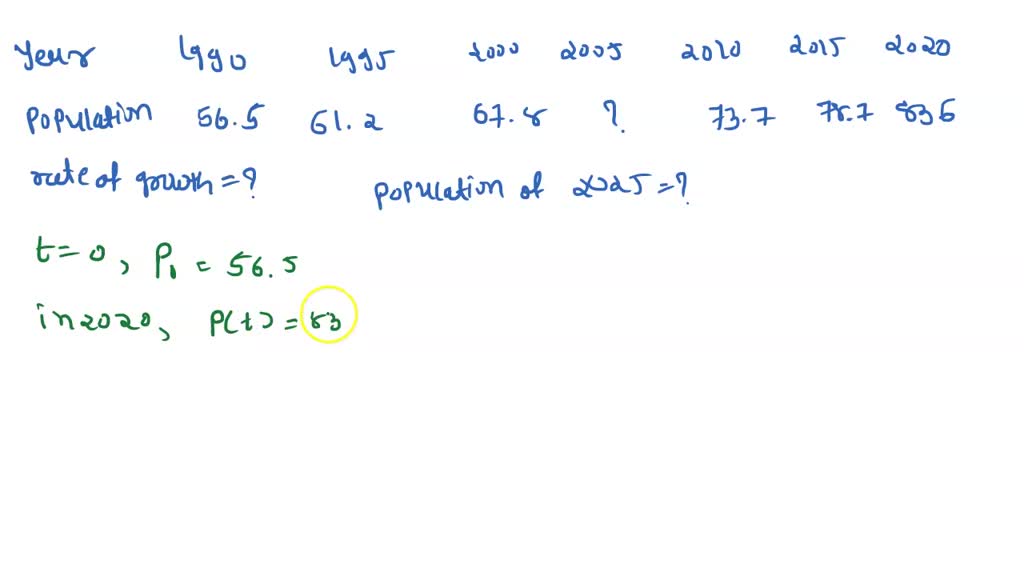 Year 1990 1995 2000 2005 2010 2015 2020
Population 56.5 61.2 67.8 ? 73.7 78.7 836
rate of growth = ? population of 2025 = ?
t = 0, P₁ = 56.5
in 2020, P(t) = 83